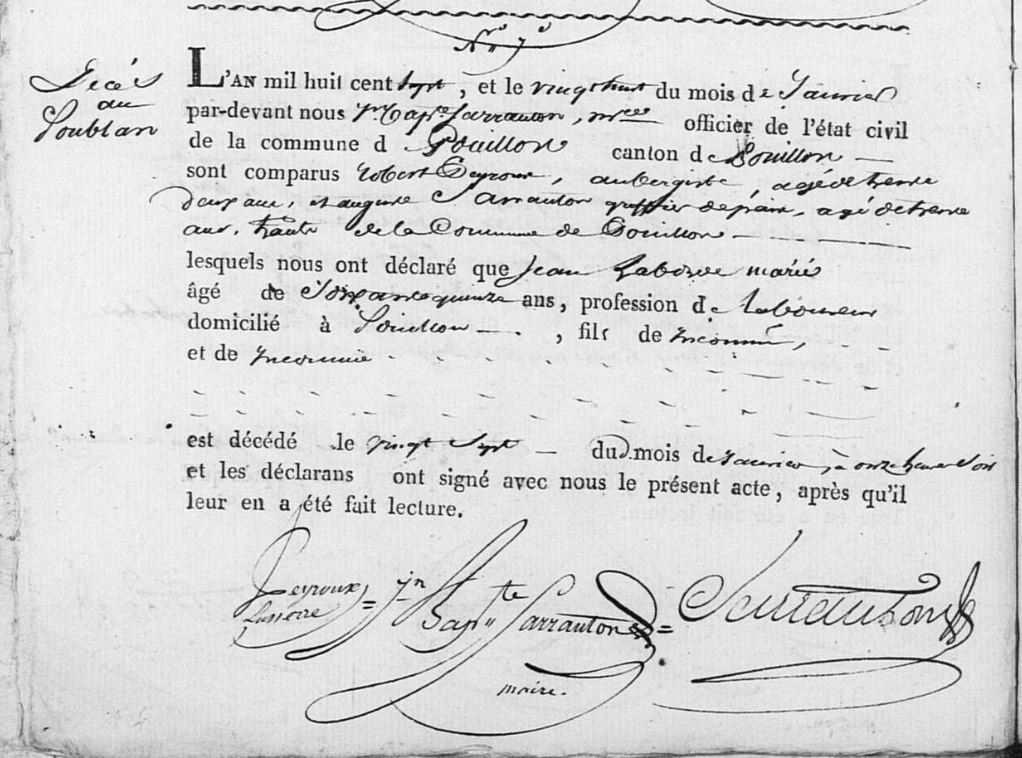 Nro 7o
Décés
au
Soublan
L'AN mil huit cent sept, et le vingt huit du mois de Janvier
par-devant nous Jn. Bapte. Sarrauton, maire officier de l'état civil
de la commune d Pouillon canton de Pouillon
sont comparus Robert Peyroux, aubergiste, agé de trente
deux ans, et auguste Sarrauton greffier de paix, agé de trente
ans, de la Commune de Pouillon
lesquels nous ont déclaré que Jean Laborde marié
âgé de Soixante quinze ans, profession de laboureur
domicilié à Pouillon , fils de inconnu,
et de inconnue
est décédé le vingt Sept du mois de Janvier, à onze heures Soir
et les déclarans ont signé avec nous le présent acte, après qu'il
leur en a été fait lecture.
Peyroux = jn Bapte Sarrauton = Sarrauton
maire.